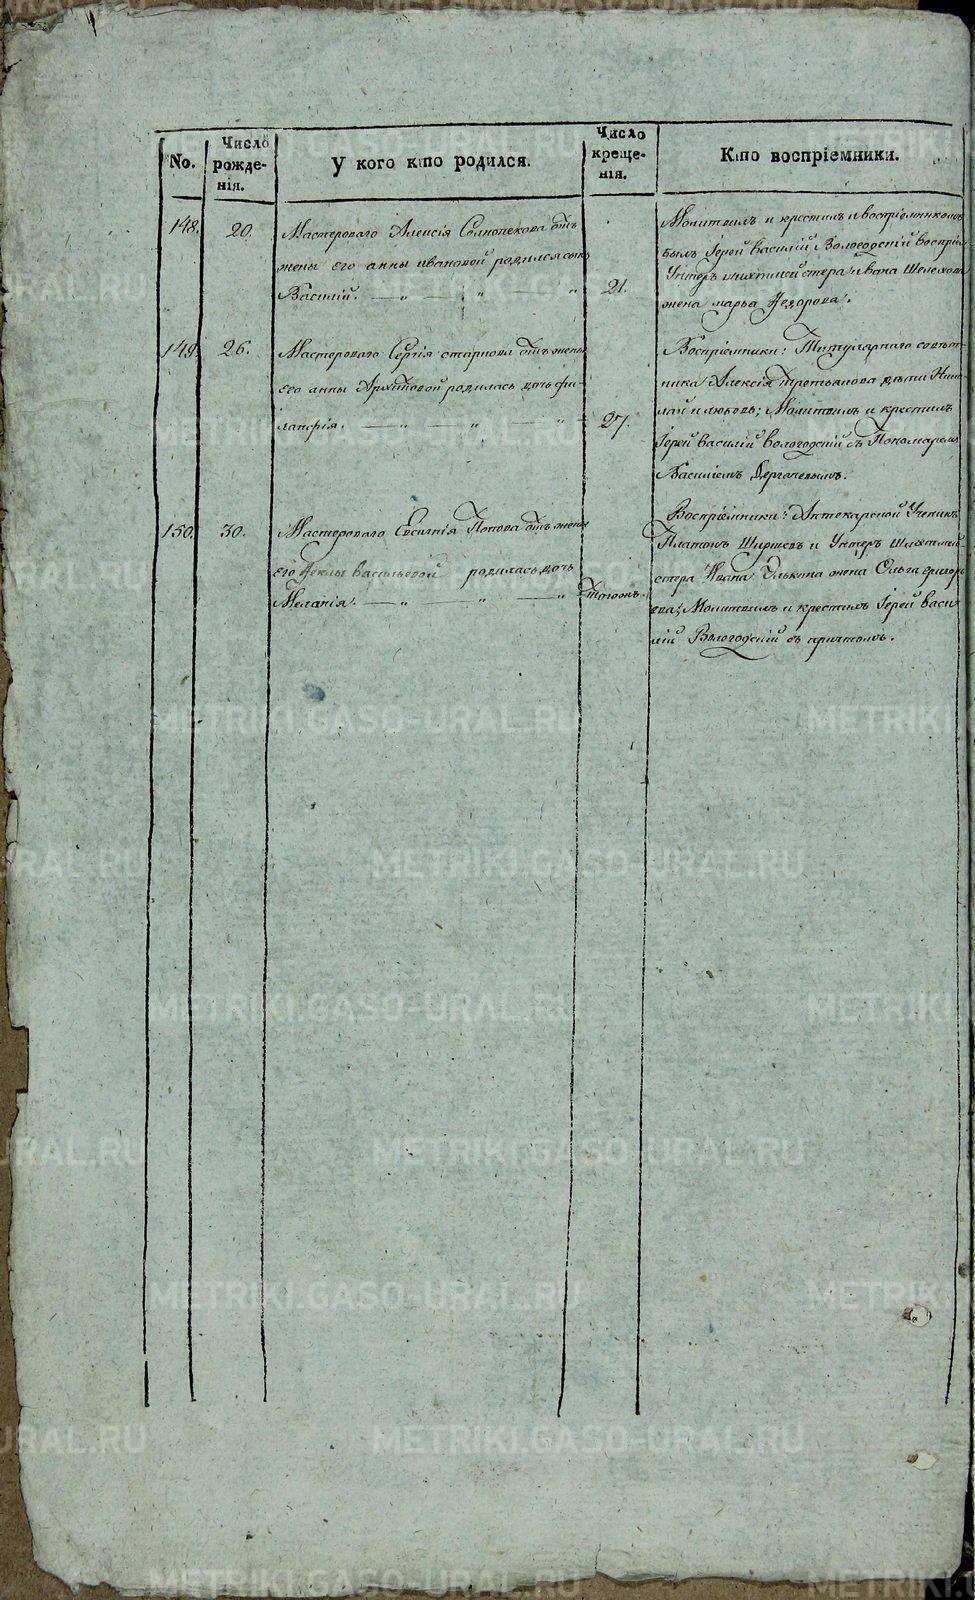 No.
Число рожде-нія.
У кого кто родился.
Число креще-нія.
Кто воспріемники.
148.
20.
Мастероваго Алексія Солнопекова отъ
жены его анны ивановой родился сынъ
Василій.
21.
Молитвилъ и крестилъ и воспріемникомъ
былъ Іерей василій Вологодскій воспріе
Унтеръ шихтмейстера ивана
жена марья Ѳедорова.
149.
26.
Мастероваго Сергія старкова отъ жены
его анны Архиповой родилась дочь Гли-
27.
Воспріемники: Титулярнаго совѣт-
ника Алексія третьякова дѣти Нико
лай и любовь; Молитвилъ и крестилъ
Іерей василій вологодскій съ Пономаремъ
Василіемъ Дергачевымъ.
150.
30.
Мастероваго Евсигнія Попова отъ жены
его Ѳеклы васильевой родилась дочь
Меланія.
Тогожъ.
Воспріемники: Аптекарской Ученикъ
Платонъ и Унтеръ Шихтмей-
стера Ивана жена Ольга григорь
ева; Молитвилъ и крестилъ Іерей васи
лій Вологодскій съ причтомъ.
METRIKI.GASO-URAL.RU